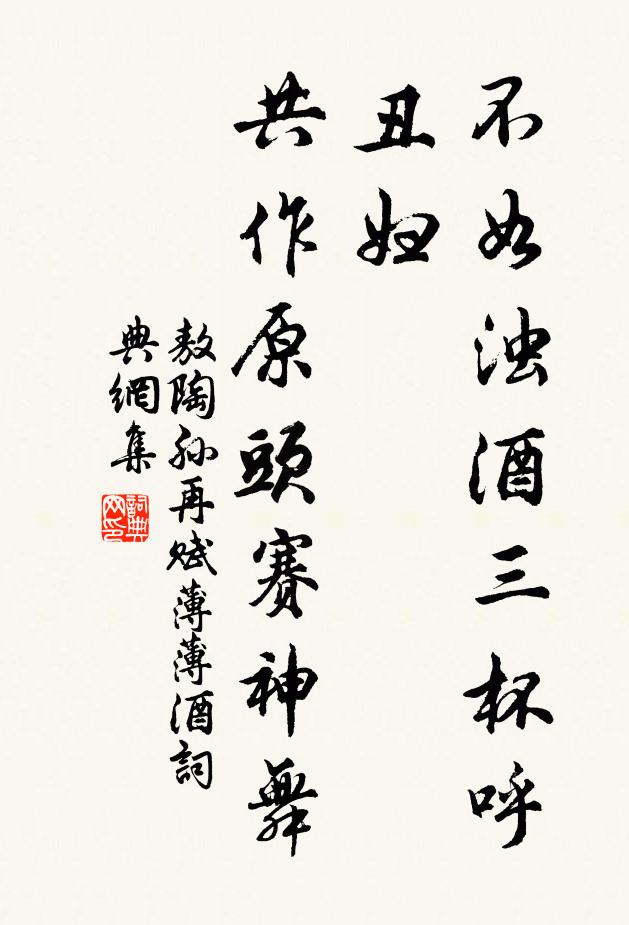 不如浊酒三杯呼
丑妇
共作原頭賽神舞
敖陶孙再赋薄薄酒詞
典網集
詞典
网印